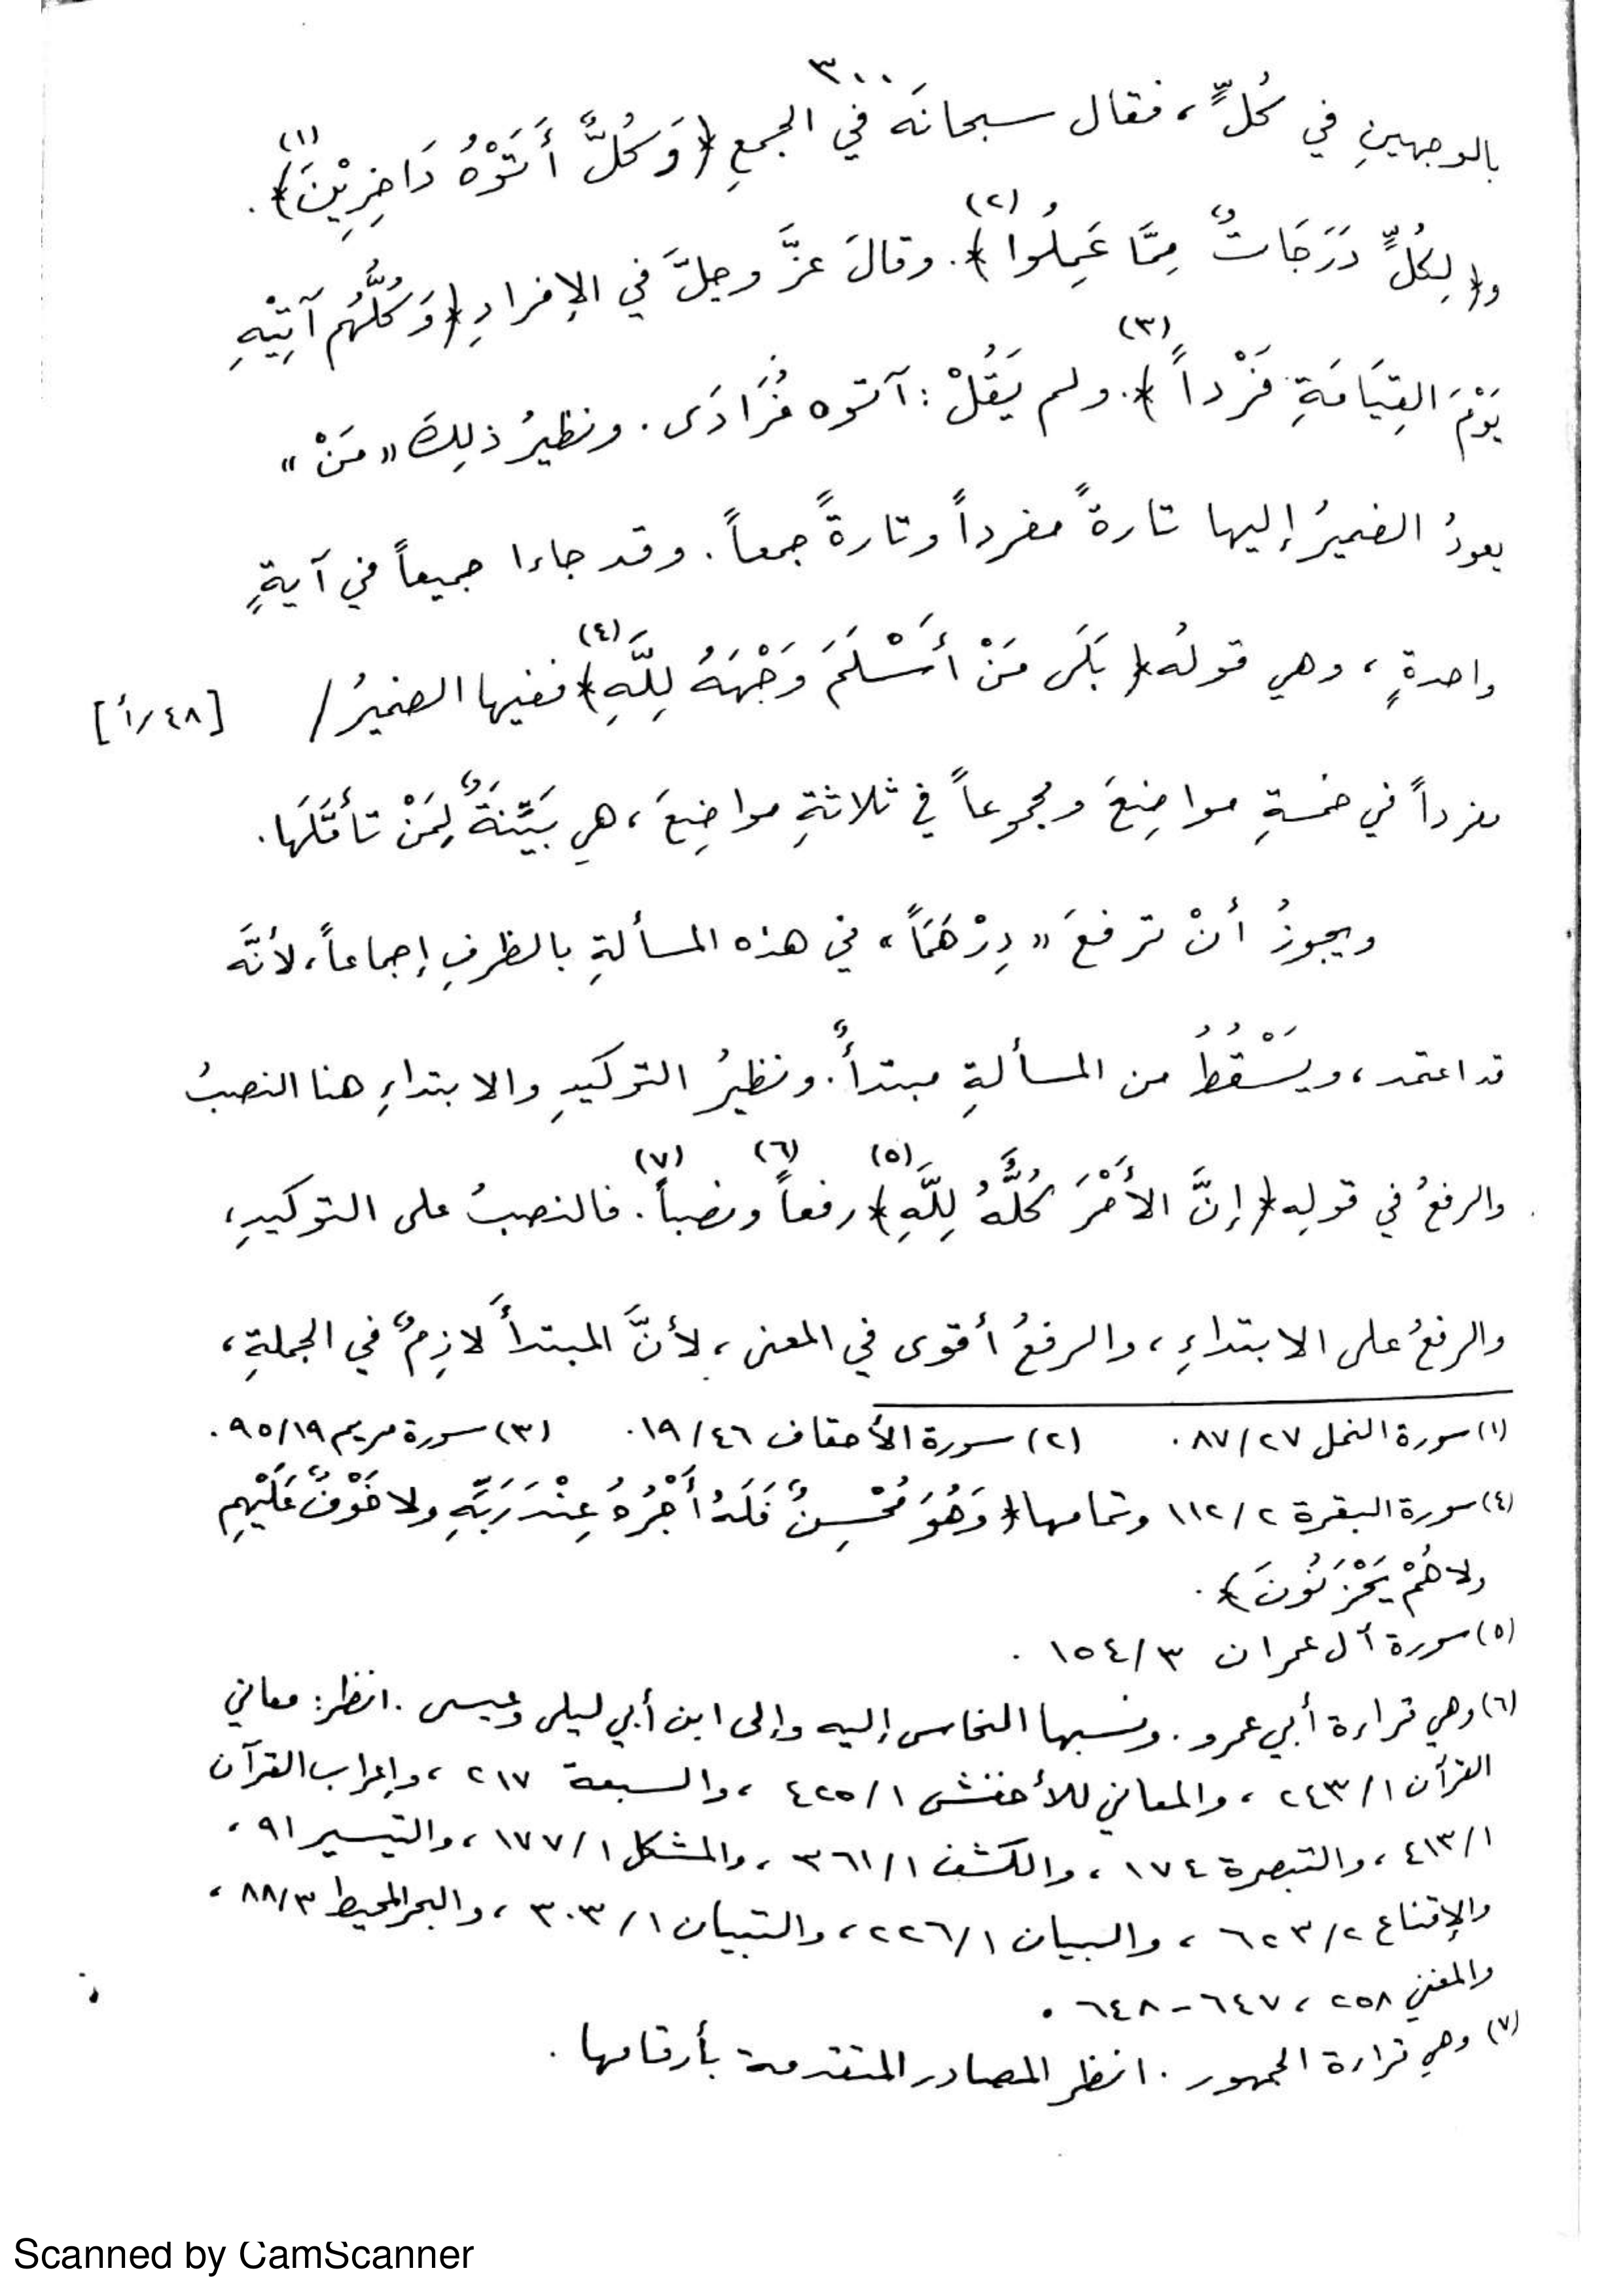 ٣٠٠
بالوجهينِ في كُلٍّ، فقال سبحانَه في الجمعِ ﴿وَكُلٌّ أَتَوْهُ دَاخِرِيْنَ﴾(١).
و﴿لِكُلٍّ دَرَجَاتٌ مِمَّا عَمِلُوا﴾(٢). وقالَ عزَّ وجلَّ في الإفرادِ ﴿وَكُلُّهُم آتِيْهِ
يَوْمَ القِيَامَةِ فَرْداً﴾(٣). ولم يَقُلْ: آتوه فُرَادَى. ونظيرُ ذلِكَ «مَنْ»
يعودُ الضميرُ إليها تارةً مفرداً وتارةً جمعاً. وقد جاءا جميعاً في آيةٍ
واحدةٍ، وهي قولُه ﴿بَلَى مَنْ أَسْلَمَ وَجْهَهُ لِلَّهِ﴾(٤) ففيها الضميرُ / [٤٨/أ]
مفرداً في خمسةِ مواضِعَ ومجموعاً في ثلاثةِ مواضِعَ، هي بَيِّنَةٌ لِمَنْ تأمَّلَها.
ويجوزُ أنْ ترفعَ «دِرْهَمَاً» في هذه المسألةِ بالظرفِ إجماعاً، لأنَّه
قد اعتمد، ويَسْقُطُ من المسألةِ مبتدأٌ. ونظيرُ التوكيدِ والابتداءِ هنا النصبُ
والرفعُ في قولِه ﴿إنَّ الأَمْرَ كُلَّهُ لِلَّهِ﴾(٥) رفعاً(٦) ونصباً(٧). فالنصبُ على التوكيدِ،
والرفعُ على الابتداءِ، والرفعُ أقوى في المعنى، لأنَّ المبتدأَ لازِمٌ في الجملةِ،
(١) سورة النمل ٨٧/٢٧. (٢) سورة الأحقاف ١٩/٤٦. (٣) سورة مريم ٩٥/١٩.
(٤) سورة البقرة ١١٢/٢ وتمامها ﴿وَهُوَ مُحْسِنٌ فَلَهُ أَجْرُهُ عِنْدَ رَبِّهِ ولا خَوْفٌ عَلَيْهِم
ولا هُمْ يَحْزَنُونَ﴾.
(٥) سورة آل عمران ١٥٤/٣.
(٦) وهي قراءة أبي عمرو. ونسبها النحاس إليه وإلى ابن أبي ليلى وعيسى. انظر: معاني
القرآن ٢٤٣/١، والمعاني للأخفش ٤٢٥/١، والسبعة ٢١٧، وإعراب القرآن
٤١٣/١، والتبصرة ١٧٤، والكشف ٣٦١/١، والمشكل ١٧٧/١، والتيسير ٩١،
والإقناع ٦٢٣/٢، والبيان ٢٢٦/١، والتبيان ٣٠٣/١، والبحر المحيط ٨٨/٣،
والمغني ٢٥٨، ٦٤٧-٦٤٨.
(٧) وهي قراءة الجمهور. انظر المصادر المتقدمة بأرقامها.
Scanned by CamScanner